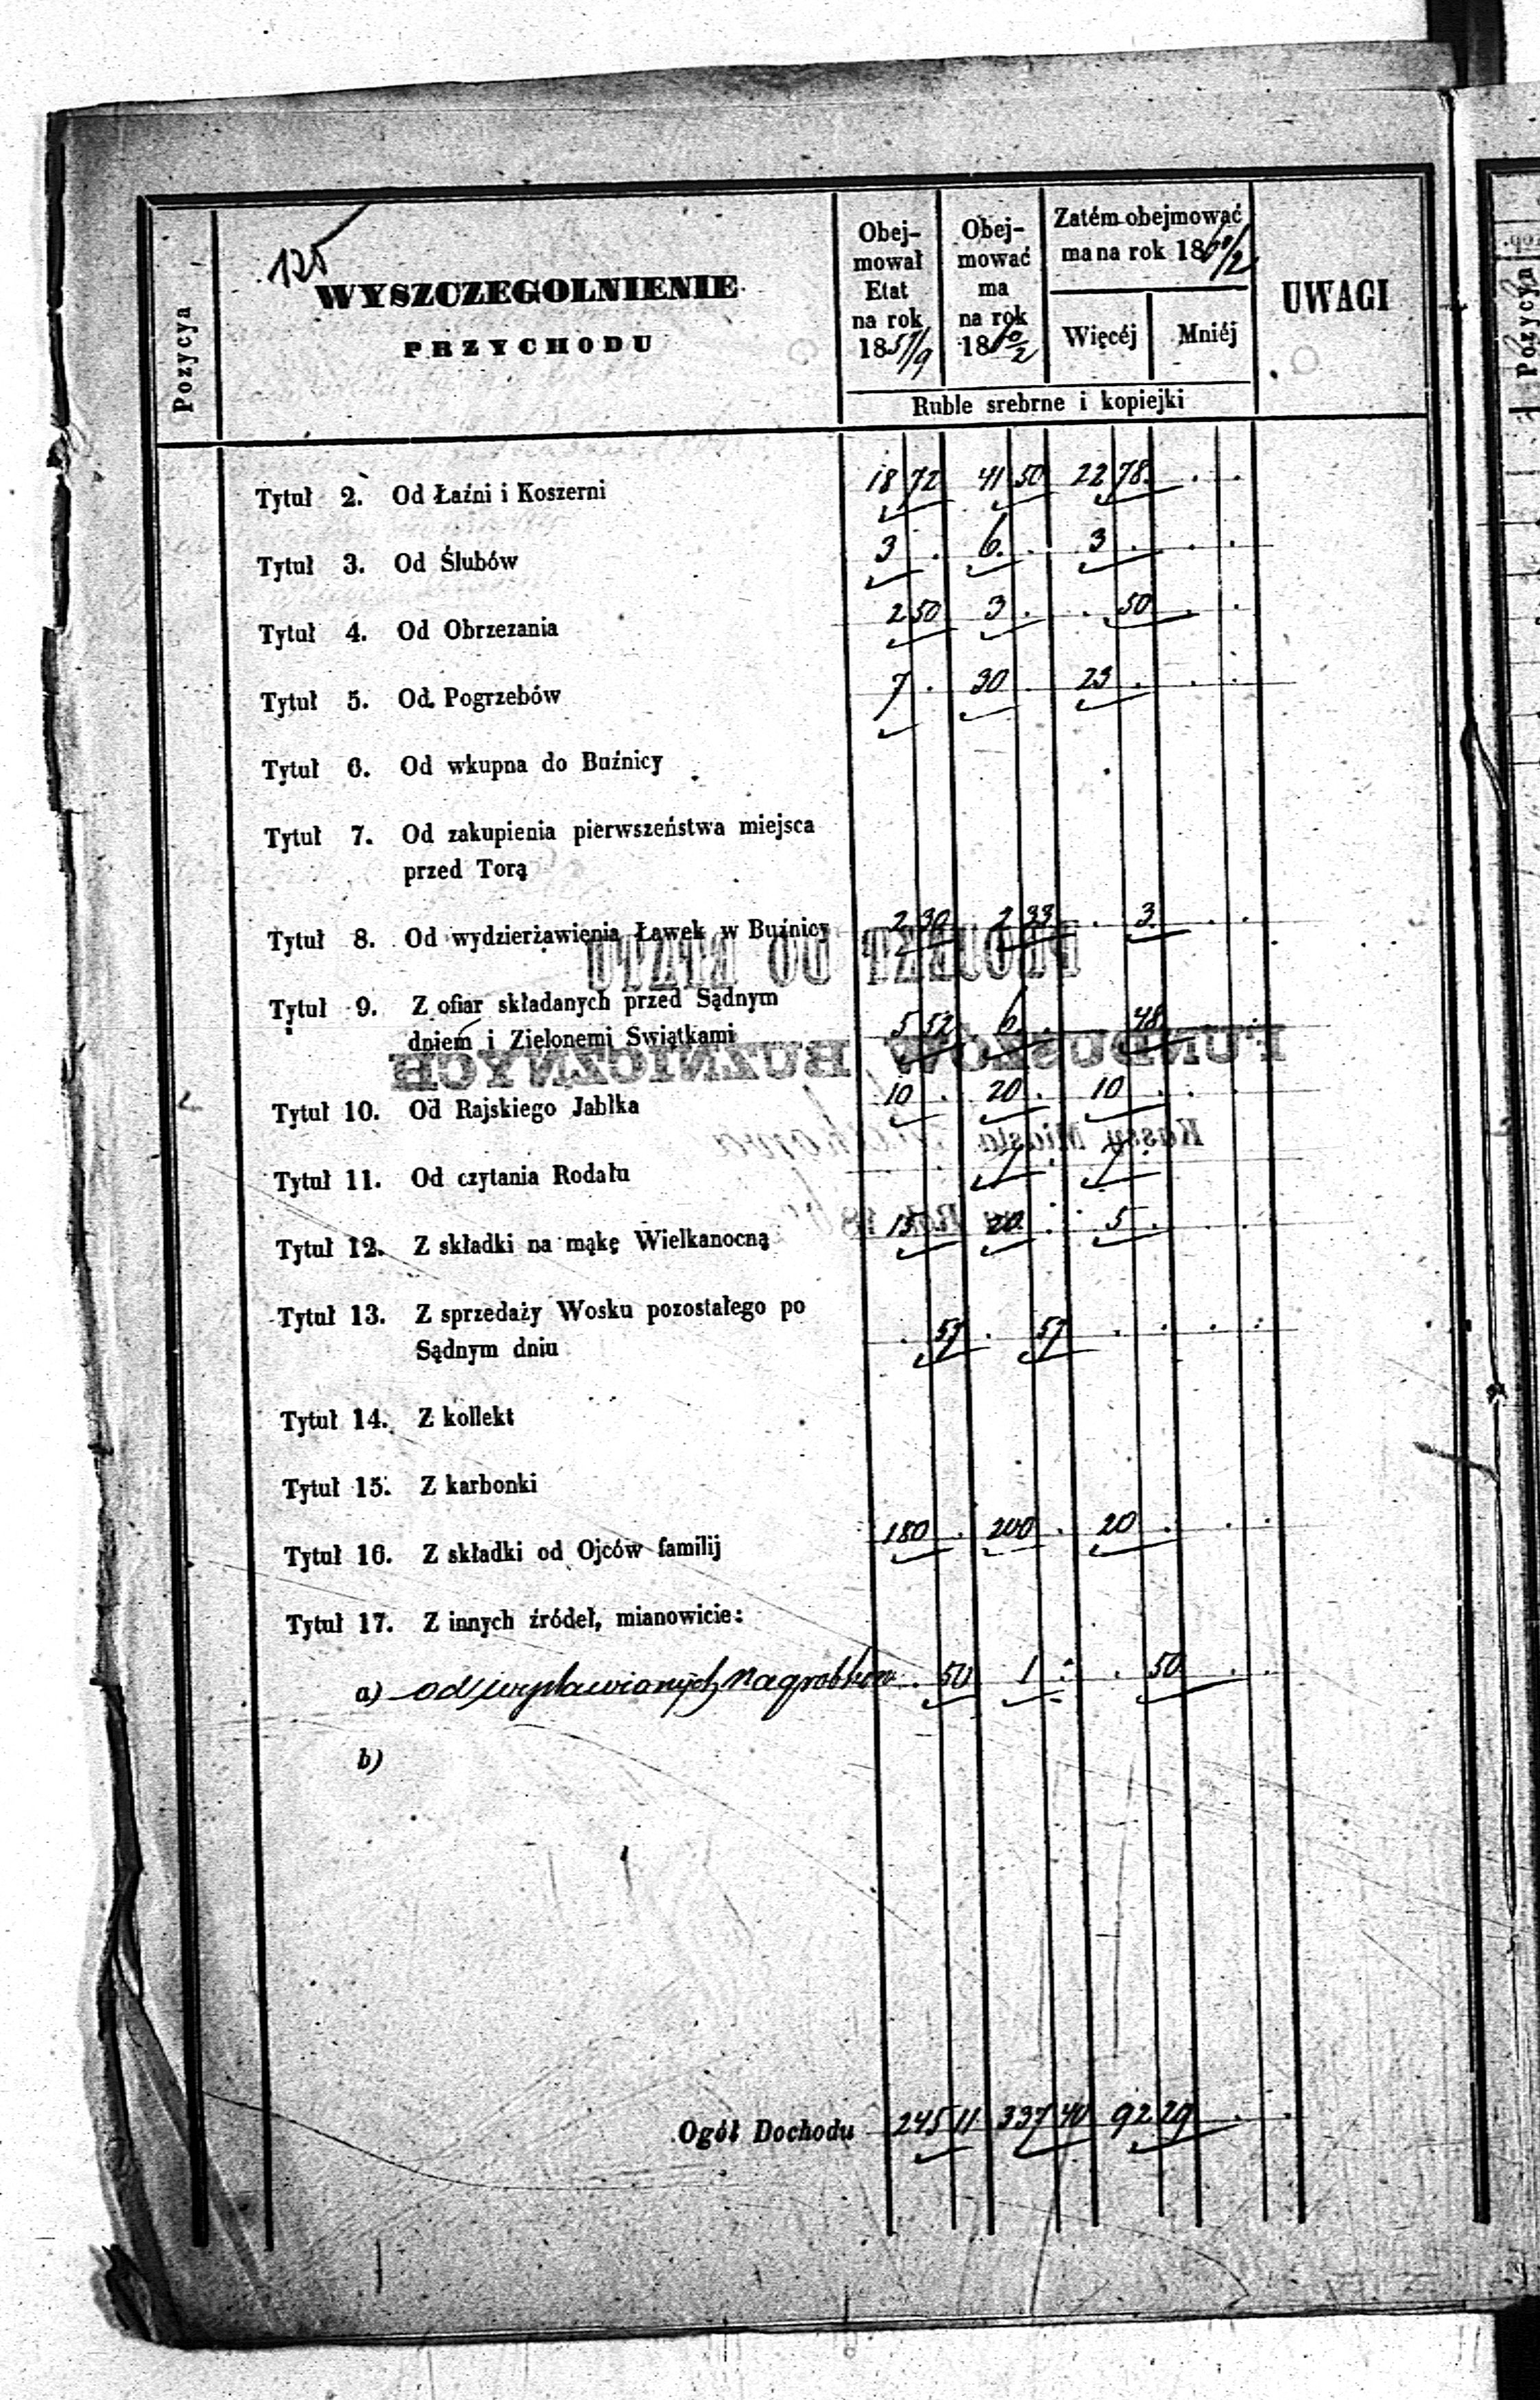 125
Pozycya
WYSZCZEGOLNIENIE
PRZYCHODU
Obej-
mował
Etat
na rok
1857/9
Obej-
mować
ma
na rok
1860/2
Zatém obejmować
ma na rok 1860/2
Więcéj Mniéj
UWAGI
Ruble srebrne i kopiejki
Tytuł 2. Od Łaźni i Koszerni 18 72 41 50 22 78 . .
Tytuł 3. Od Ślubów 3 . 6 . 3 . . .
Tytuł 4. Od Obrzezania 2 50 3 . . 50 . .
Tytuł 5. Od Pogrzebów 7 . 30 . 23 . . .
Tytuł 6. Od wkupna do Buźnicy
Tytuł 7. Od zakupienia pierwszeństwa miejsca
przed Torą
Tytuł 8. Od wydzierżawienia Ławek w Buźnicy 2 30 2 33 . 3 . .
Tytuł 9. Z ofiar składanych przed Sądnym
dniem i Zielonemi Swiątkami 5 52 6 . . 48 . .
Tytuł 10. Od Rajskiego Jabłka 10 . 20 . 10 . . .
Tytuł 11. Od czytania Rodału
Tytuł 12. Z składki na mąkę Wielkanocną 15 . 20 . 5 . . .
Tytuł 13. Z sprzedaży Wosku pozostałego po
Sądnym dniu . 57 . 57 . . . .
Tytuł 14. Z kollekt
Tytuł 15. Z karbonki
Tytuł 16. Z składki od Ojców familij 180 . 200 . 20 . . .
Tytuł 17. Z innych źródeł, mianowicie:
a) od wystawionych nagrobków . 50 1 . . 50 . .
b)
Ogół Dochodu 245 11 337 40 92 29 . .
PROJEKT DO ETATU
FUNDUSZÓW BUŹNICZNYCH
Kassy Miasta
Rok 186
Pozycya